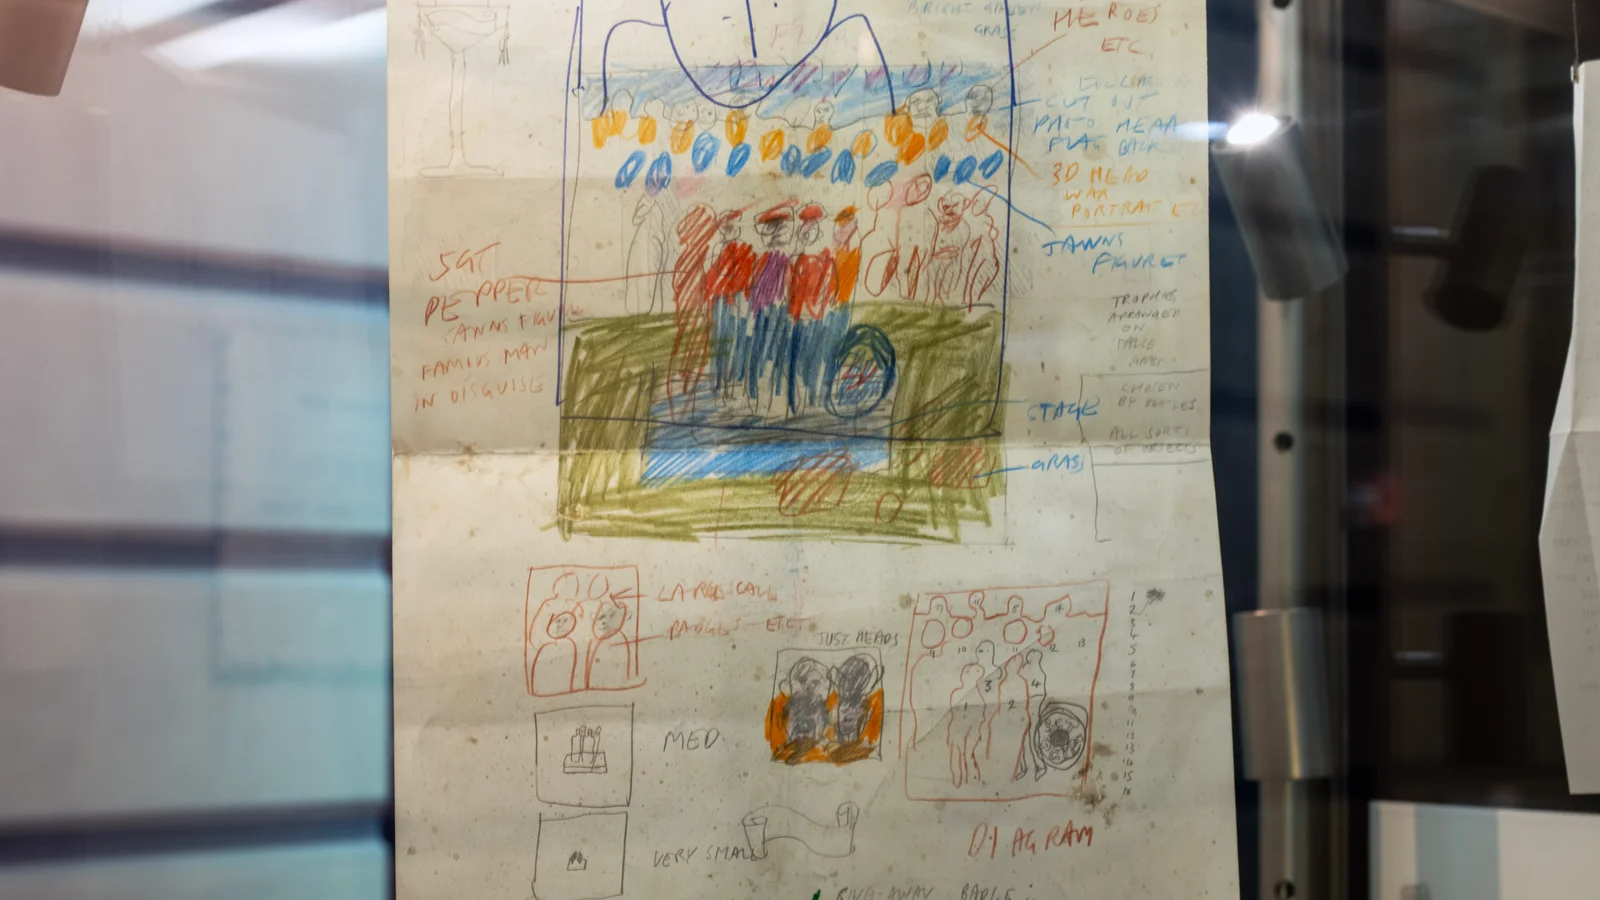 BRIGHT GREEN
GRASS
HEROES
ETC
CUT OUT
PHOTO HEAD
FLAT BACK
3D HEAD
WAX
PORTRAIT ETC
JAWNS
FIGURES
SGT
PEPPER
JAWNS FIGURE
FAMOUS MAN
IN DISGUISE
TROPHIES
ARRANGED
ON
STAGE
GRASS
CHOSEN
BY BEATLES
ALL SORTS
OF OBJECTS
LARGE SCALE
BADGES ETC.
JUST HEADS
9 10 11 12 13
3 4
1 2
1
2
3
4
5
6
7
8
9
10
11
12
13
14
15
16
MED
VERY SMALL
DIAGRAM
GIVE-AWAY BADGE